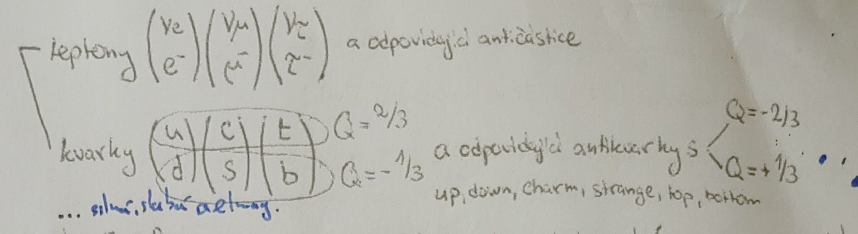 leptony (νe e⁻) (νμ μ⁻) (ντ τ⁻) a odpovídající antičástice
kvarky (u d) (c s) (t b) Q = 2/3 Q = -1/3 a odpovídající antikvarky s Q = -2/3 Q = + 1/3
up, down, charm, strange, top, bottom
... silná, slabá a elmag.